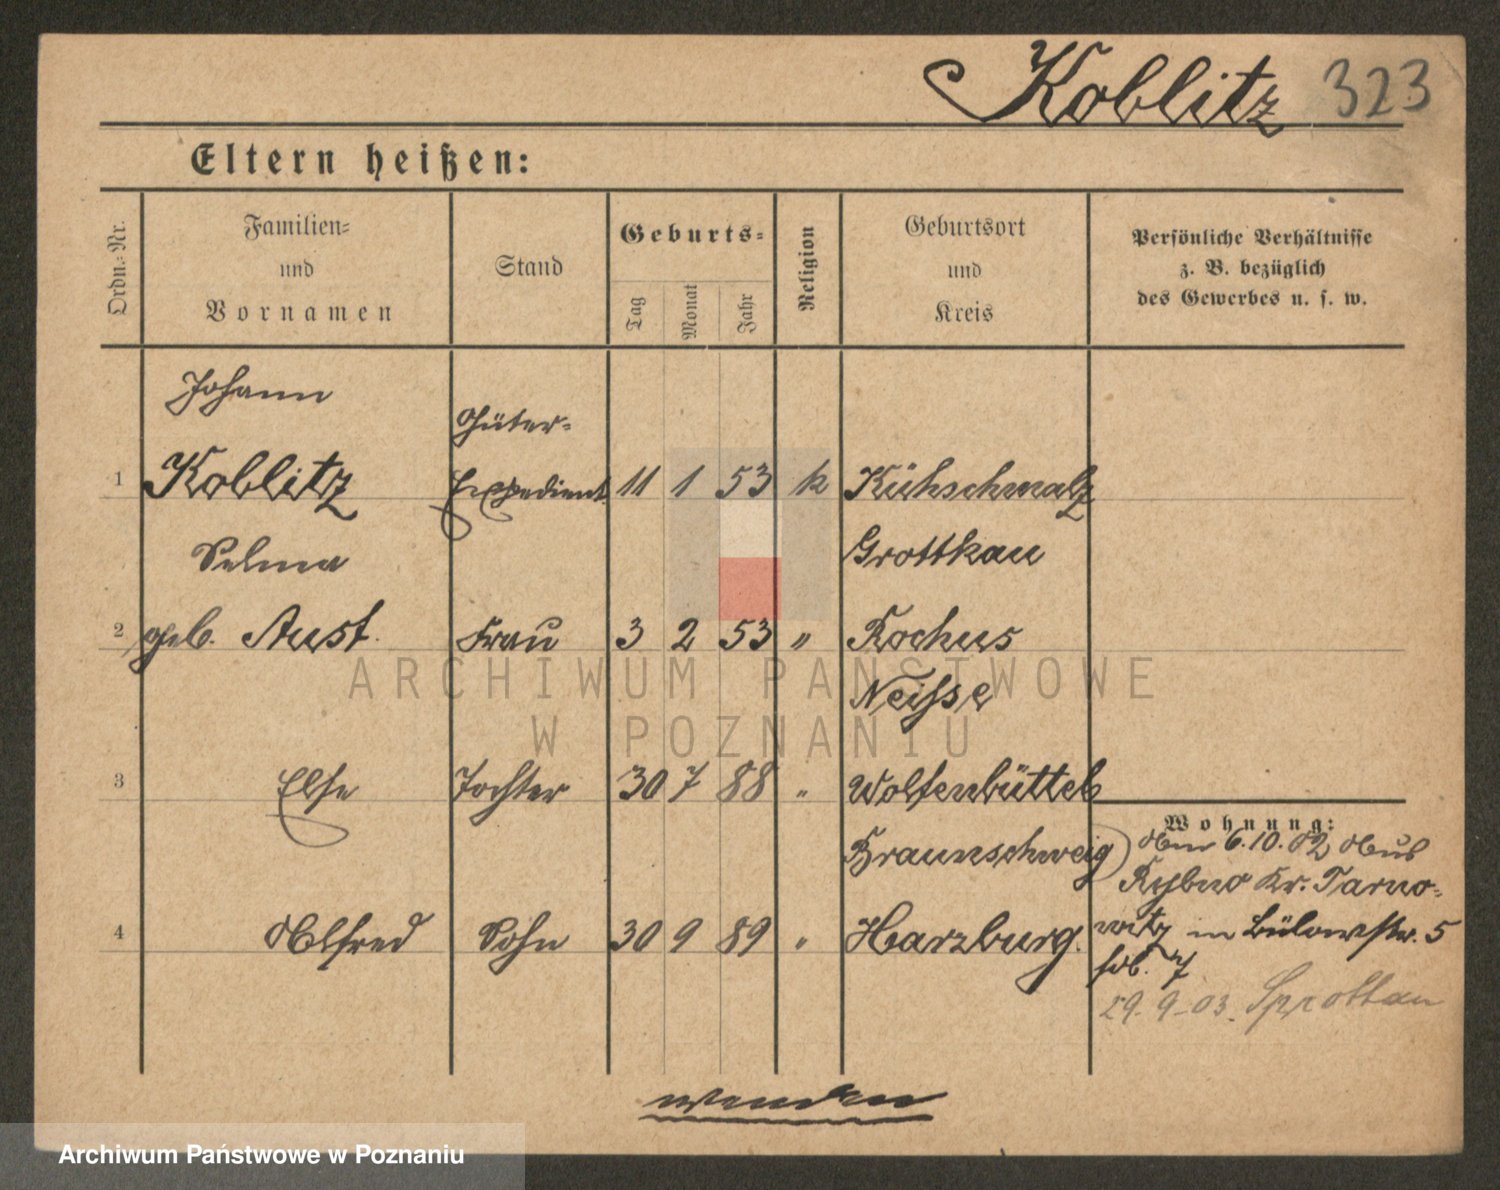 Koblitz 323
Eltern heißen:
Ordn.-Nr.
Familien-
und
Vornamen
Stand
Geburts-
Tag
Monat
Jahr
Religion
Geburtsort
und
Kreis
Persönliche Verhältnisse
z. B. bezüglich
des Gewerbes u. s. w.
Johann
Güter-
1 Koblitz Expedient 11 1 53 k Kühschmalz
Selma Grottkau
2 geb. Aust. Frau 3 2 53 " Rochus
Neisse
3 Else Tochter 30 7 88 " Wolfenbüttel
Wohnung:
Braunschweig Am 6.10.02 aus
Rybno Kr. Tarno-
4 Alfred Sohn 30 9 89 " Harzburg.
witz in Bülowstr. 5
29.9.03. Sprottau
wenden
ARCHIWUM PAŃSTWOWE
W POZNANIU
Archiwum Państwowe w Poznaniu